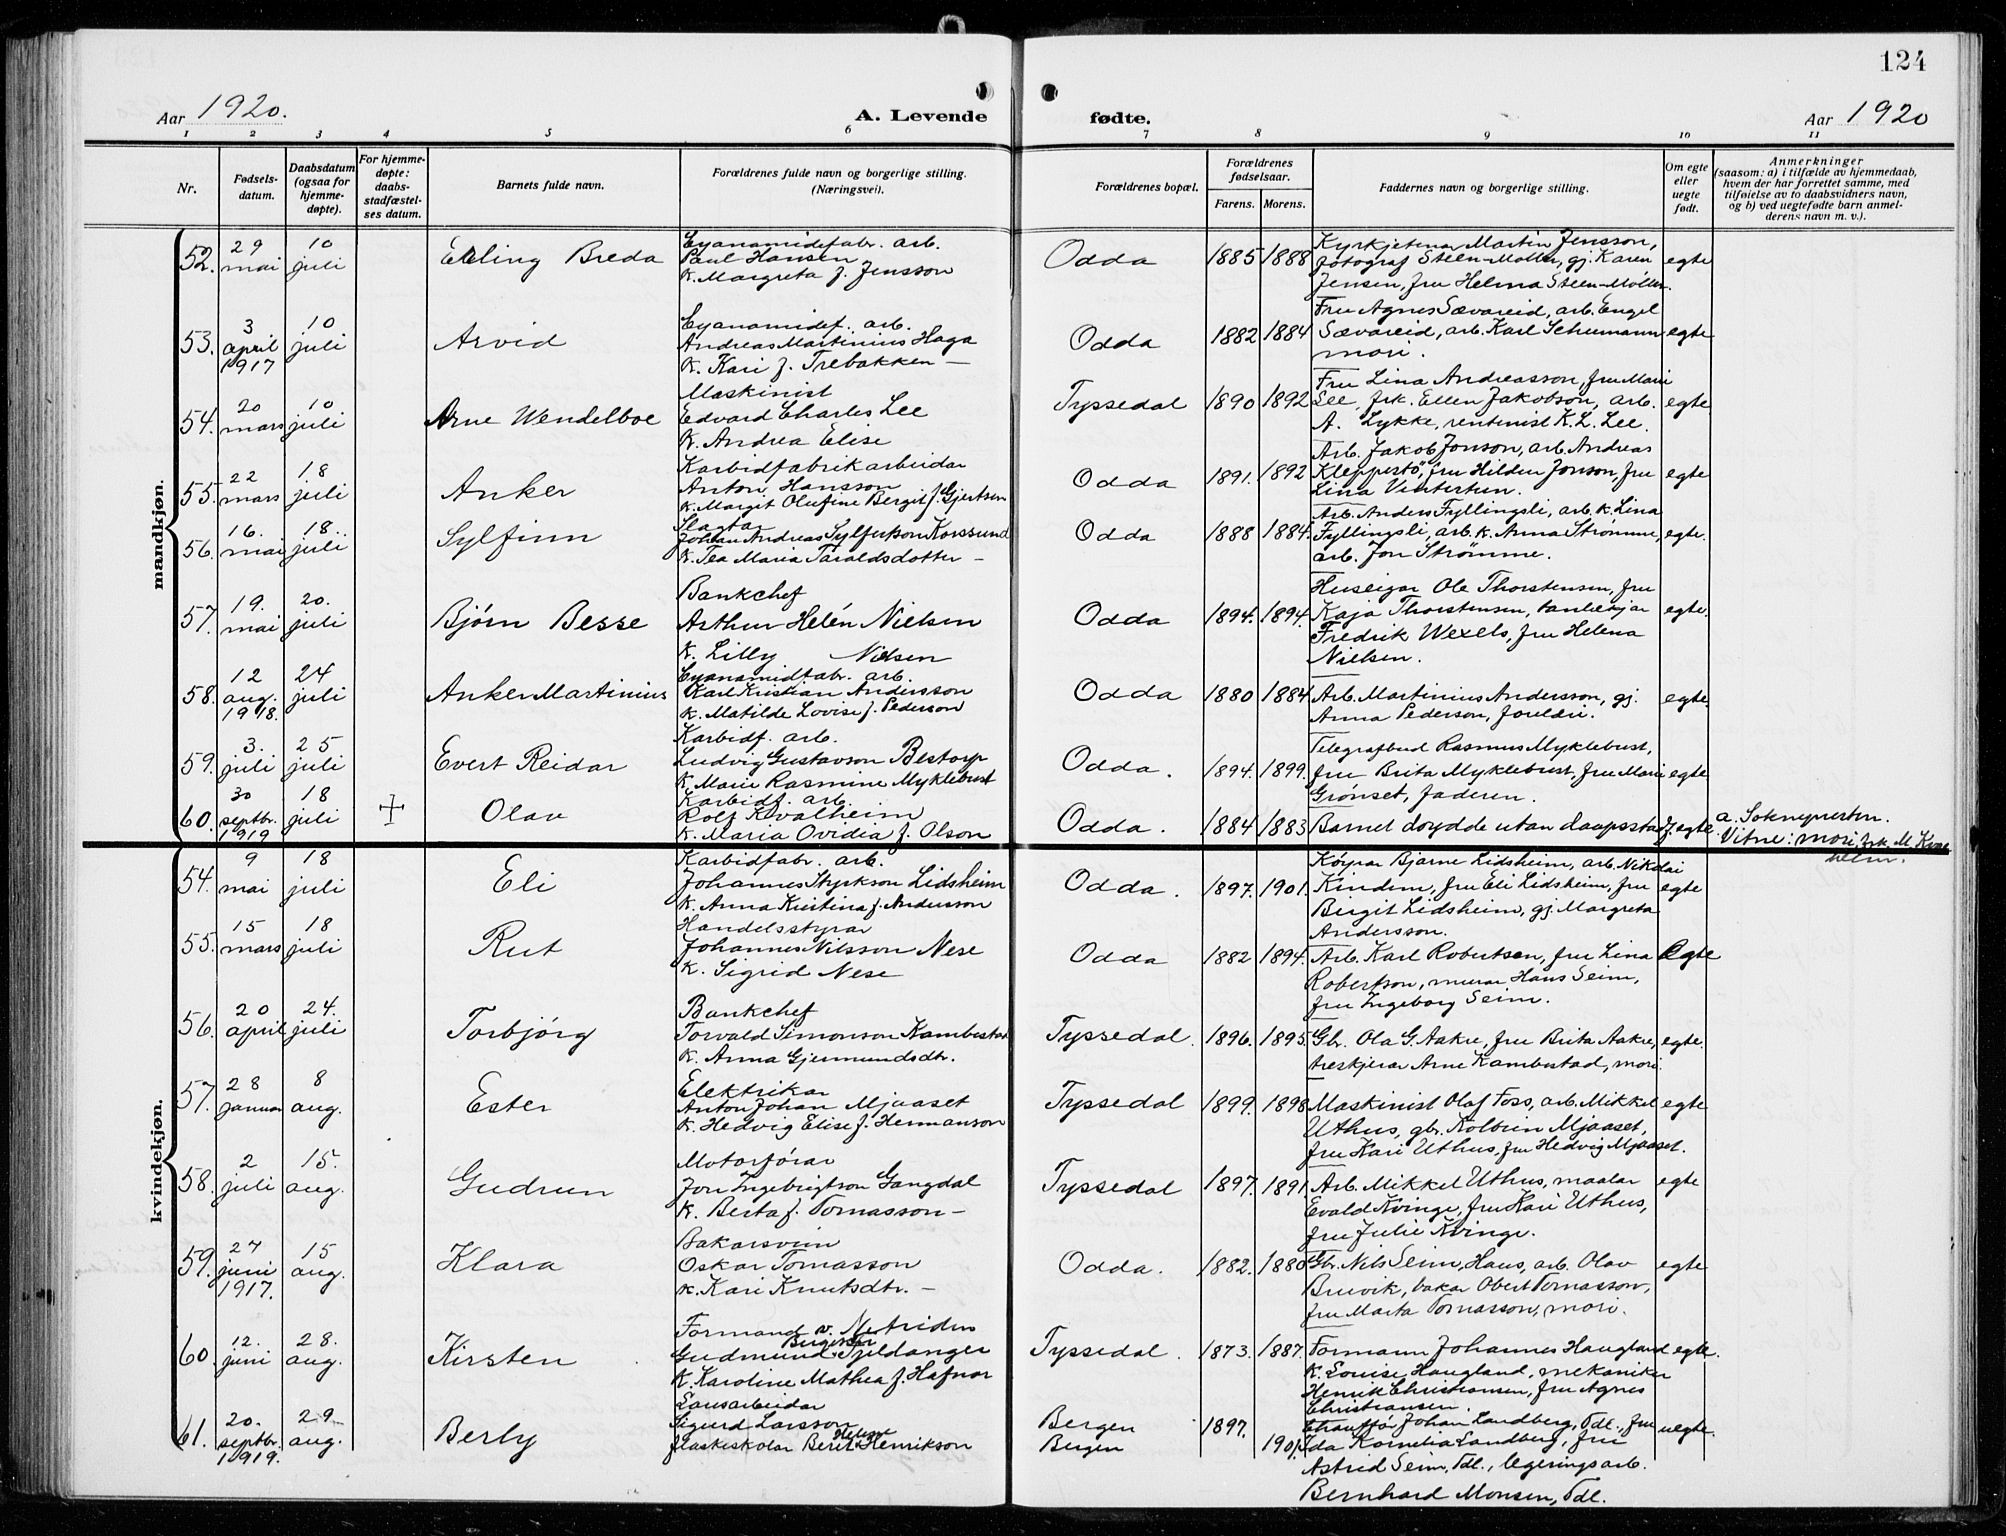 124
Aar 1920.
A. Levende
fødte.
Aar 1920
1 2 3 4 5 6 7 8 9 10 11
Nr.
Fødsels-
datum.
Daabsdatum
(ogsaa for
hjemme-
døpte).
For hjemme-
døpte:
daabs-
stadfæstel-
ses datum.
Barnets fulde navn.
Forældrenes fulde navn og borgerlige stilling.
(Næringsvei).
Forældrenes bopæl.
Forældrenes
fødselsaar.
Farens. Morens.
Faddernes navn og borgerlige stilling.
Om egte
eller
uegte
født.
Anmerkninger
(saasom: a) i tilfælde av hjemmedaab,
hvem der har forrettet samme, med
tilføielse av to daabsvidners navn,
og b) ved uegtefødte barn anmel-
derens navn m. v.).
mandkjøn.
52.
29
mai
10
juli
Erling Breda
Cyanamidefabr. arb.
Paul Hansen
k. Margreta f. Jensson
Odda
1885 1888
Kyrkjetenar Martin Jensson,
fotograf Steen-Møller, gj. Karen
Jensen, fru Helma Steen-Møller.
egte
53.
3
april
1917
10
juli
Arvid
Cyanamidef. arb.
Andreas Martinius Haga
k. Kari f. Trebakken —
Odda
1882 1884
Fru Agnes Sævareid, arb. Engel
Sævareid, arb. Karl Schumann
mori.
egte
54.
20
mars
10
juli
Arne Wendelboe
Maskinist
Edvard Charles Lee
k. Andrea Elise
Tyssedal
1890 1892
Fru Lina Andreasson, fru Marie
Lee, frk. Ellen Jakobson, arb.
A. Lykke, rentenist K. L. Lee.
egte
55.
22
mars
18
juli
Anker
Karbidfabrikarbeidar
Anton Hansson
k. Margit Olufine Bergit f. Gjertsen
Odda
1891. 1892
Arb. Jakob Jonson, arb. Andreas
Kleppertø, fru Hilden Jonson, fru
Lina Vintertun.
egte
56.
16.
mai
18.
juli
Sylfinn
Slagtar
Johan Andreas Sylfestson Korssund
k. Tea Maria Taraldsdotter —
Odda
1888 1884.
Arb. Anders Fyllingsli, arb. k. Lina
Fyllingsli, arb. k. Anna Strømme,
arb. Jon Strømme.
egte.
57.
19.
mai
20.
juli
Bjørn Besse
Bankchef
Arthur Helén Nielsen
k. Lilly Nielsen
Odda
1894. 1894.
Huseigar Ole Thorstensen, fru
Kaja Thorstensen,
Fredrik Wexels, fru Helena
Nielsen.
egte.
58.
12
aug.
1918.
24
juli
Anker Martinius
Cyanamidfabr. arb.
Karl Kristian Andersson
k. Matilde Lovise f. Pederson
Odda
1880 1884
Arb. Martinius Andersson, gj.
Anna Pederson, foreldri.
egte.
59.
3.
juli
25
juli
Evert Reidar
Karbidf. arb.
Ludvig Gustavson Bestorp
k. Marie Rasmine Myklebust
Odda.
1894. 1899.
Telegrafbud Rasmus Myklebust,
fru Brita Myklebust, fru Marie
Grønset, faderen.
egte
60.
30
septbr.
1919
18
juli
Olav
Karbidf. arb.
Rolf Kvalheim
k. Maria Ovidia f. Olson
Odda.
1884 1883
Barnet døydde utan daapsstadf.
egte.
a. Sokneprerten.
Vitne: mori, frk. M. Kval-
heim.
kvindekjøn.
54.
9
mai
18
juli
Eli
Karbidfabr. arb.
Johannes Styrkson Lidsheim
k. Anna Kristina f. Andersson
Odda.
1897. 1901.
Køyrar Bjarne Lidsheim, arb. Nikolai
Kindem, fru Eli Lidsheim, fru
Birgit Lidsheim, gj. Margreta
Andersson.
egte
55.
15
mars
18
juli
Rut
Handelsstyrar
Johannes Nilsson Nese
k. Sigrid Nese
Odda
1882 1894.
Arb. Karl Robertsen, fru Lina
Robertson, murar Hans Seim,
fru Ingeborg Seim.
Egte
56.
20
april
24.
juli
Torbjørg
Bankchef
Torvald Simonson Kambestad
k. Anna Gjermundsdtr.
Tyssedal.
1896. 1895.
Gbr. Ola G. Aakre, fru Brita Aakre,
treskjerar Arne Kambestad, mori.
egte.
57.
28
januar
8
aug.
Ester
Elektrikar
Anton Johan Mjaaset
k. Hedvig Elise f. Hermanson
Tyssedal
1899. 1898
Maskinist Olaf Foss, arb. Mikkel
Uthus, gbr. Kolbein Mjaaset,
fru Kari Uthus, fru Hedvig Mjaaset.
egte
58.
2
juli
15.
aug.
Gudrun
Motorførar
Jon Ingebrigtson Gangdal
k. Berta f. Tomasson —
Tyssedal
1897. 1891
Arb. Mikkel Uthus, maalar
Evald Kvinge, fru Kari Uthus,
fru Julie Kvinge.
egte
59.
27
juni
1917.
15
aug.
Klara
Bakarsvein
Oskar Tomasson
k. Kari Knutsdtr. —
Odda.
1882. 1880
Gbr. Nils Seim, Hans, arb. Olav
Bruvik, bakar Obert Tomasson,
fru Marta Tomasson, mori.
egte
60.
12.
juni
28.
aug.
Kirsten
Formand v. Nitriden
Gudmund Tjeldanger
k. Karoline Mathea f. Hafnor
Tyssedal.
1873. 1887.
Formann Johannes Haugland
k. Louise Haugland, mekaniker
Henrik Christiansen, fru Agnes
Christiansen.
egte.
61.
20.
septbr.
1919.
29
aug.
Berly
Lausarbeidar
Sigurd Larsson
flaskeskolar Berit Helene Henrikson
Bergen
Bergen
1897.
1901.
Chauffør Johan Landberg, Tdl., fru
Ida Kornelia Landberg, fru
Astrid Seim, Tdl., legeringsarb.
Bernhard Monsen, Tdl.
uegte.